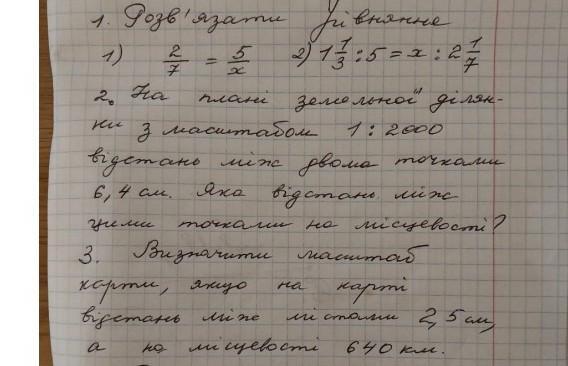 1. Розв'язати рівняння
1) 2/7 = 5/x 2) 1 1/3 : 5 = x : 2 1/7
2. На плані земельної ділян-
ки з масштабом 1 : 2000
відстань між двома точками
6,4 см. Яка відстань між
цими точками на місцевості?
3. Визначити масштаб
карти, якщо на карті
відстань між містами 2,5 см,
а на місцевості 640 км.